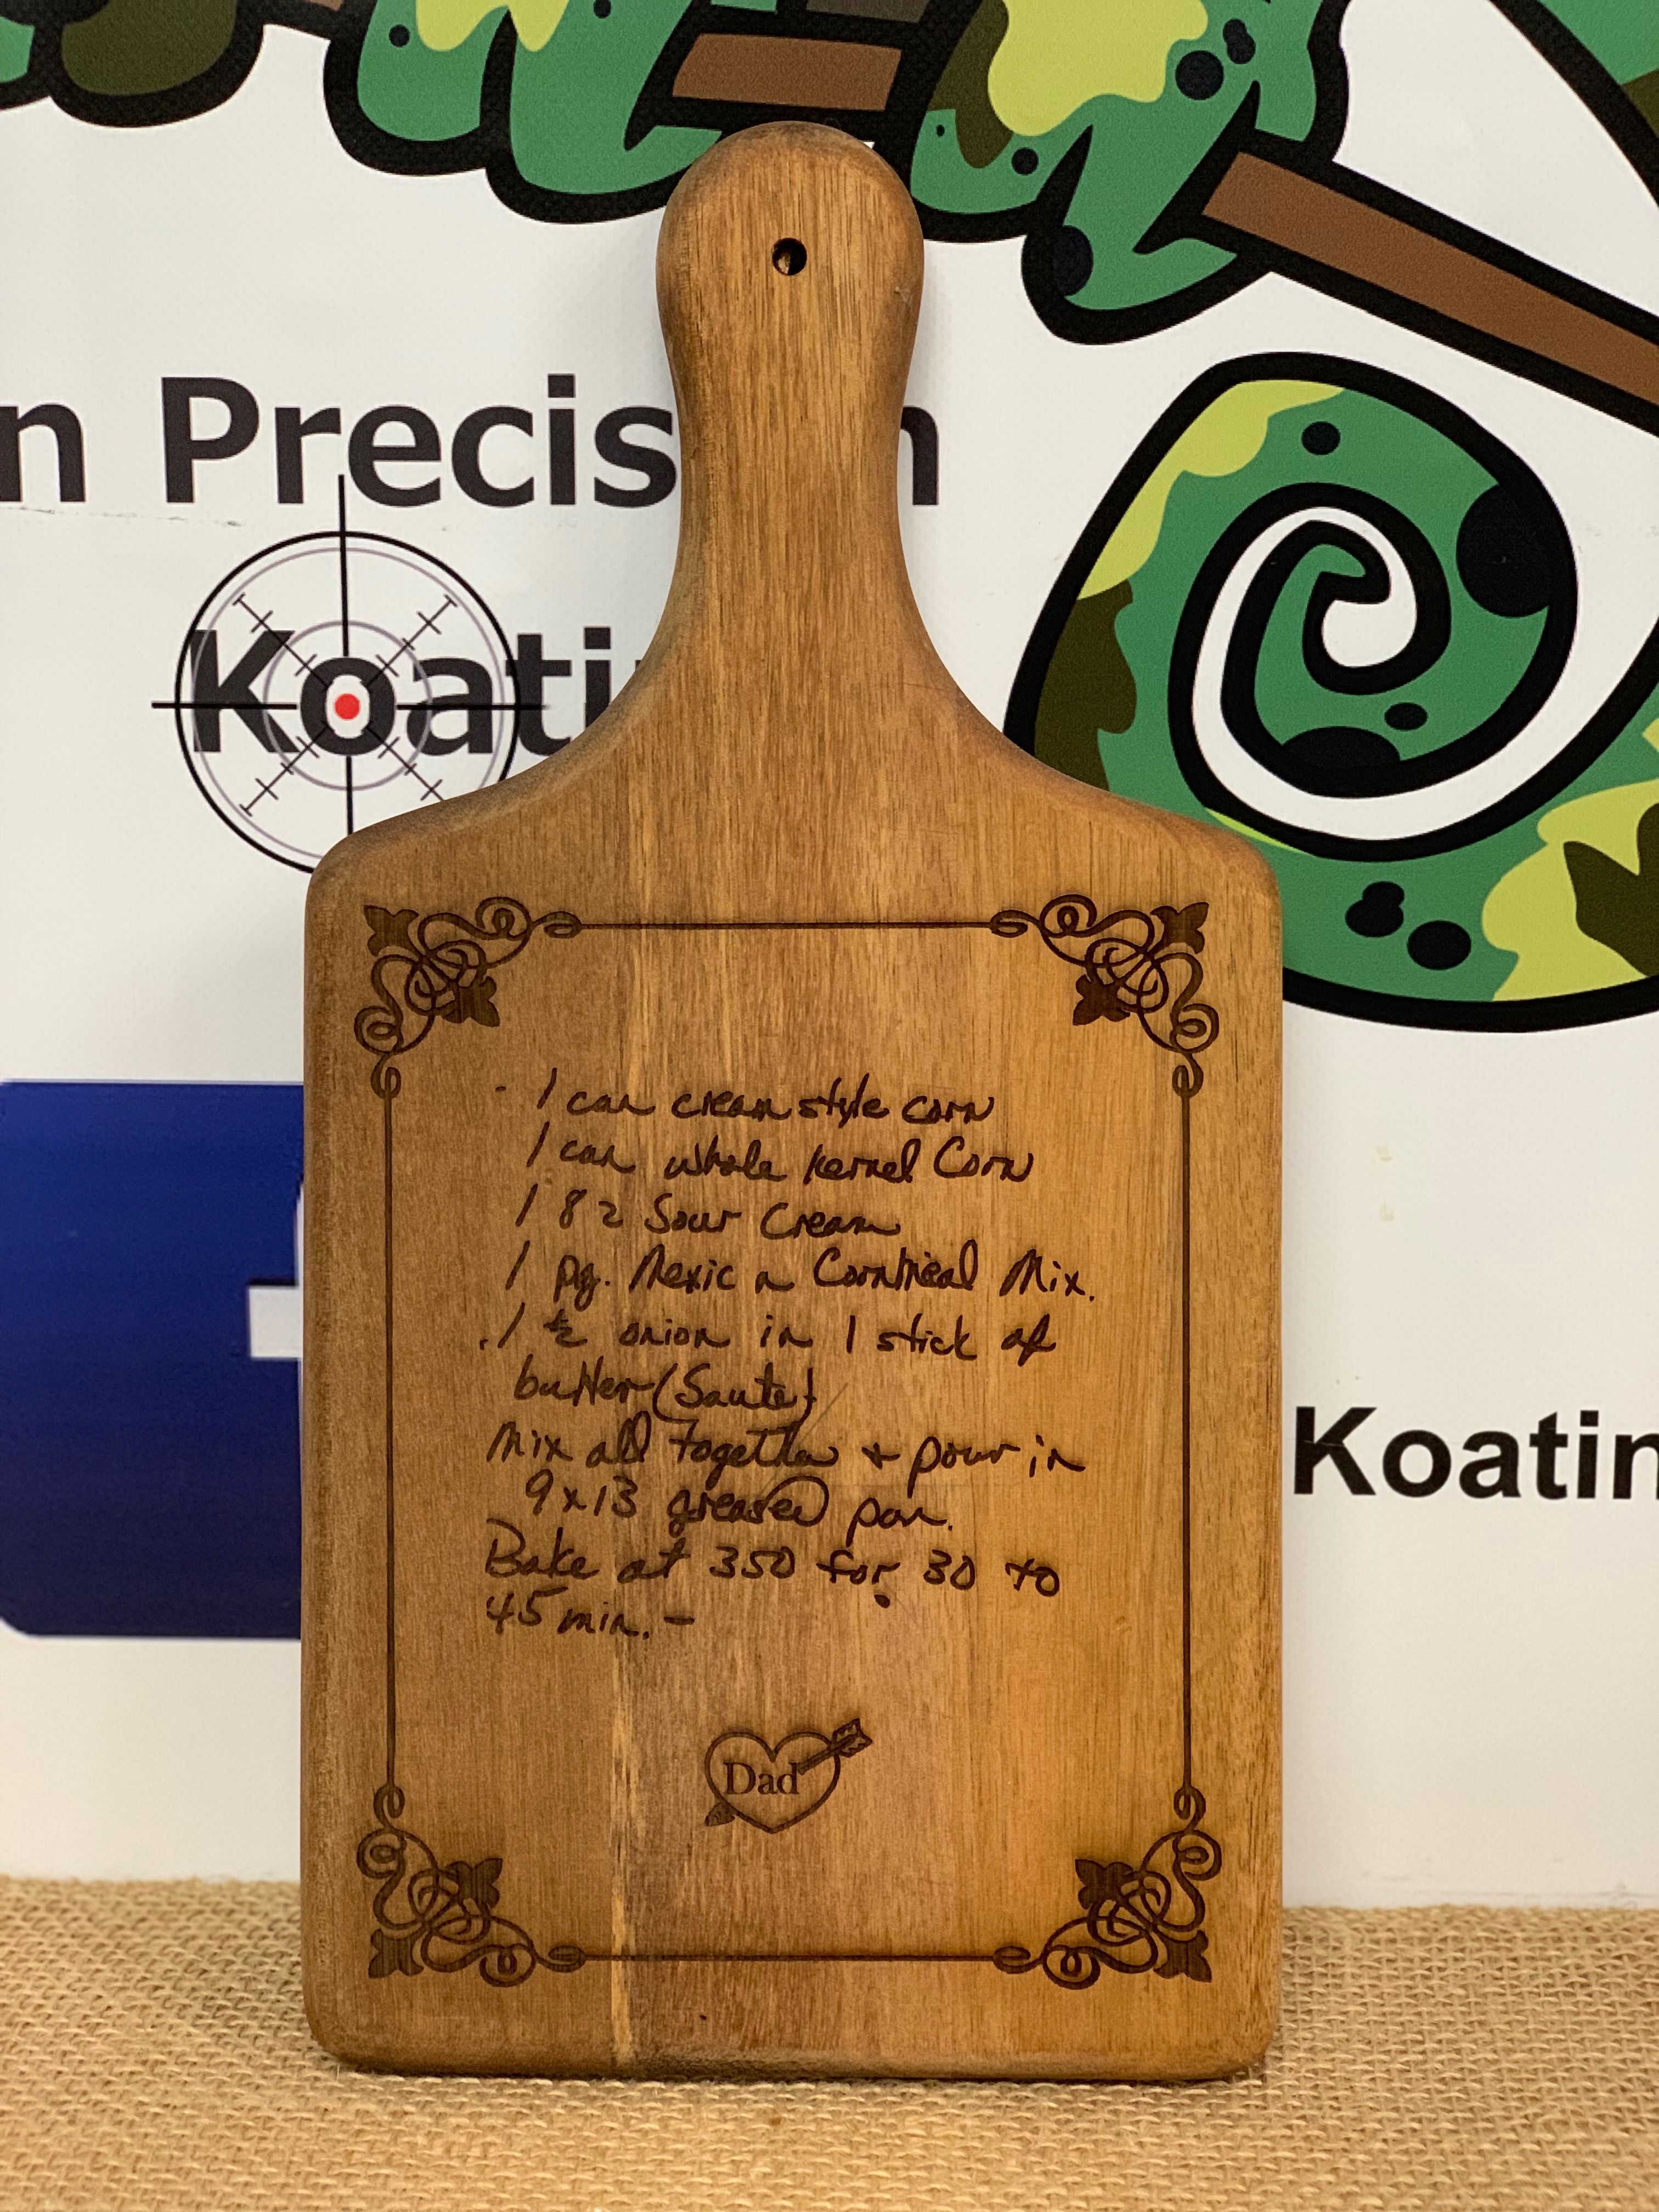 n Precis n
Koati
- 1 can cream style corn
1 can whole kernel Corn
1 8 z Sour Cream
1 pg. Mexic n Cornmeal Mix.
.1 ½ onion in 1 stick of
butter (Saute)
Mix all together + pour in
9x13 greased pan.
Bake at 350 for 30 to
45 min. -
Dad
Koatin